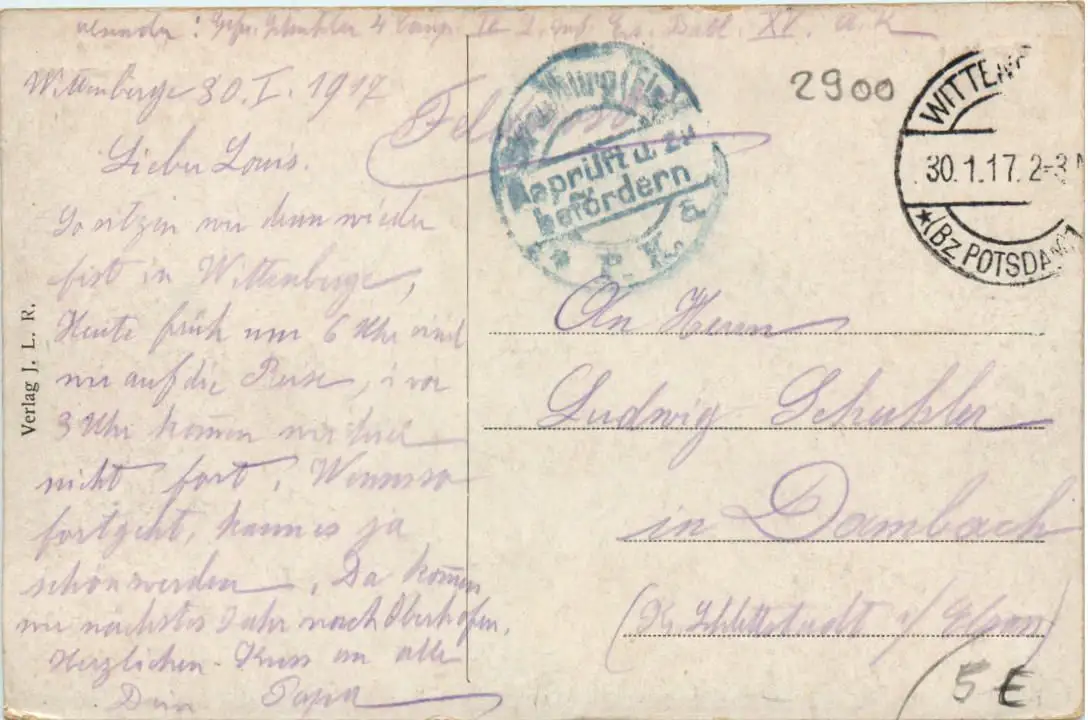 Absender: Gefr. Schuhler 4 Comp. Ldst. Inf. Ers. Batl. XV. A. K
Wittenberge 30. I. 1917
Lieber Louis.
So sitzen wir denn wieder
fest in Wittenberge,
Heute früh um 6 Uhr sind
wir auf die Reise, i vor
3 Uhr kommen wir hier
nicht fort. Wenn es so
fortgeht, kann es ja
schön werden. Da kommen
wir nächstes Jahr nach Oberhofen.
Herzlichen Kuss an alle
Dein Papa
Verlag J. L. R.
Feldpost
Strassburg (Els.)
Geprüft u. zu
befördern
P. K. a
2900
WITTENB
30.1.17. 2-3 N
★(BZ POTSDAM)1
An Herrn
Ludwig Schuhler
in Dambach
(Kr. Schlettstadt i/ Elsass)
5 €